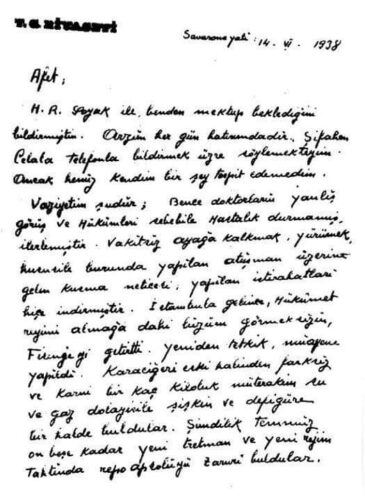 T. C. RİYASETİ
Savarona yatı : 14. VI. 1938
Afet;
H. R. Soyak ile, benden mektup beklediğini
bildirmiştin. Arzum her gün hatırımdadır. Şifahen
Celala telefonla bildirmek üzre söylemekteyim.
Ancak henüz kendim bir şey tespit edemedim.
Vaziyetim şudur; Bence doktorların yanlış
görüş ve hükümleri sebebile Hastalık durmamış,
ilerlemiştir. Vakitsiz ayağa kalkmak, yürümek,
hususile burunda yapılan atuşman üzerine
gelen kusma neticesi, yapılan istirahatları
hiçe indirmiştir. İstanbula gelince, Hükûmet
reyimi almağa daki lüzum görmeksizin,
Fisenje yi getirtti. Yeniden tetkik, muayene
yapıldı. Karaciğeri eski halinden farksız
ve karnı bir kaç kiloluk müterakim su
ve gaz dolayısile şişkin ve defigüre
bir halde buldular. Şimdilik Temmuz
on beşe kadar yeni tretman ve yeni rejim
Tahtında repo absolüyü zaruri buldular.